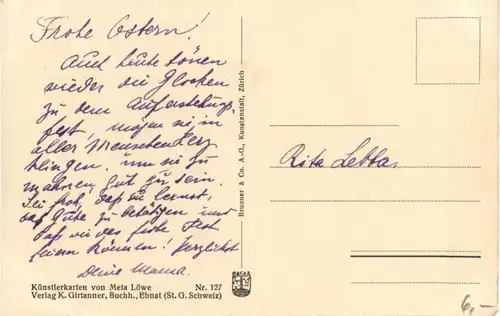 Frohe Ostern!
Auch heute tönen
wieder die Glocken
zu dem Auferstehungs-
fest, mögen sie in
aller Menschen Herz
klingen, um sie zu
mahnen gut zu sein.
Sei froh, daß du lernst,
das Gute zu betätigen und
daß wir das frohe Fest
feiern können! Herzlichst
Deine Mama.
Künstlerkarten von Meta Löwe Nr. 127
Verlag K. Girtanner, Buchh., Ebnat (St. G. Schweiz)
Brunner & Co. A.-G., Kunstanstalt, Zürich
Rita
6,-